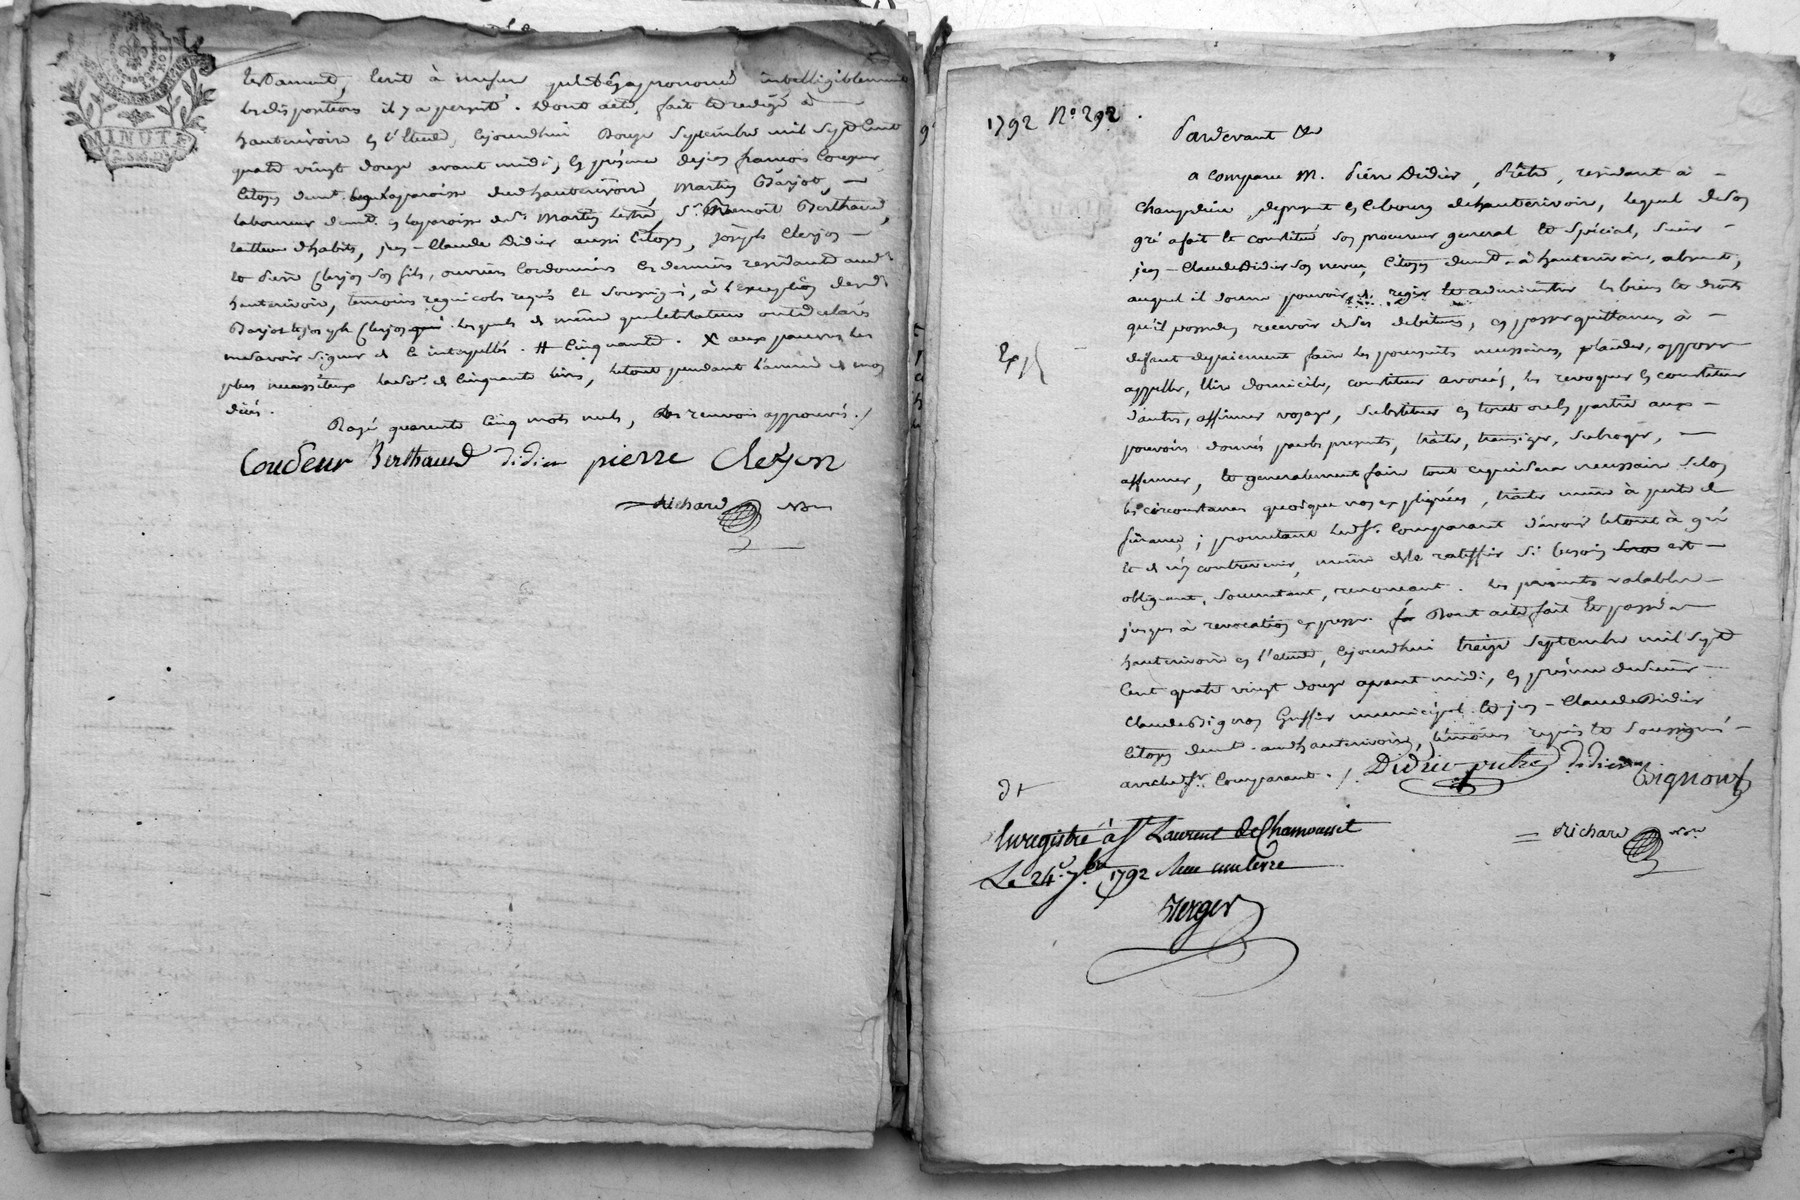 MINUTE
testament, écrit à mesure qu'il les a prononcé intelligiblement
les dispositions il y a persisté. Dont acte, fait et redigé à
hauterivoire en l'Etude, cejourd'hui douze septembre mil sept cent
quatre vingt douze avant midi, en présence de François Coudeur
Citoyen demt. en la paroisse dud. hauterivoire, Martin Barjot,
laboureur demt. en la paroisse de St. Martin Lestra, Sr. Benoit Berthaud,
tailleur d'habits, jean-Claude Didier aussi Citoyen, joseph Clerjon
et Pierre Clerjon son fils, ouvriers Cordonniers ces derniers residants aud.
hauterivoire, temoins requis et Soussignés, à l'exception desd.
Barjot et joseph Clerjon lesquels de même que le testateur ont déclaré
ne savoir signer de ce interpellés. # Cinquante. X aux pauvres les
plus necessiteux la so. de Cinquante livres, le tout pendant l'année de mon
décès.
Rayé quarante cinq mots nuls, les renvois approuvés. /
Coudeur Berthaud didier pierre Clerjon
Richard Nre
1792 No. 292.
Pardevant &c
a Comparu M. Pierre Didier, Prêtre, residant à
Champdieu, de present en ce bourg de hauterivoire, lequel de son
gré a fait et constitué son procureur general et spécial, Sieur
jean-Claude Didier son neveu, Citoyen demt. à hauterivoire, absent,
auquel il donne pouvoir de regir et administrer les biens et droits
qu'il possede, recevoir de ses debiteurs, en passer quittances, à
defaut de paiement faire les poursuites necessaires, plaider, opposer
appeller, élire domicile, constituer avoués, les revoquer en constituer
d'autres, affirmer voyage, substituer en tout ou en partie aux
pouvoirs donnés par les presentes, traiter, transiger, subroger,
affermer, et generalement faire tout ce qui sera necessaire selon
les circonstances quoique non expliquées, traiter même à perte de
finance; promettant led. Sr. Comparant d'avoir le tout à gré
et de n'y contrevenir, même de le ratiffier si besoin est
obligeant, soumettant, renonceant. les presentes valables
jusques à revocation expresse. Dont acte fait et passé à
hauterivoire en l'etude, cejourd'hui treize septembre mil sept
Cent quatre vingt douze avant midi, en présence du Sieur
Claude Bignon Greffier municipal et jean-Claude Didier
Citoyen demt. aud. hauterivoire, témoins requis et Soussignés
avec led. Sr. Comparant. /. Didier prêtre didier Bignon
Richard Nre
Enregistré à St Laurent de Chamousset
Le 24. 7bre 1792
Berger